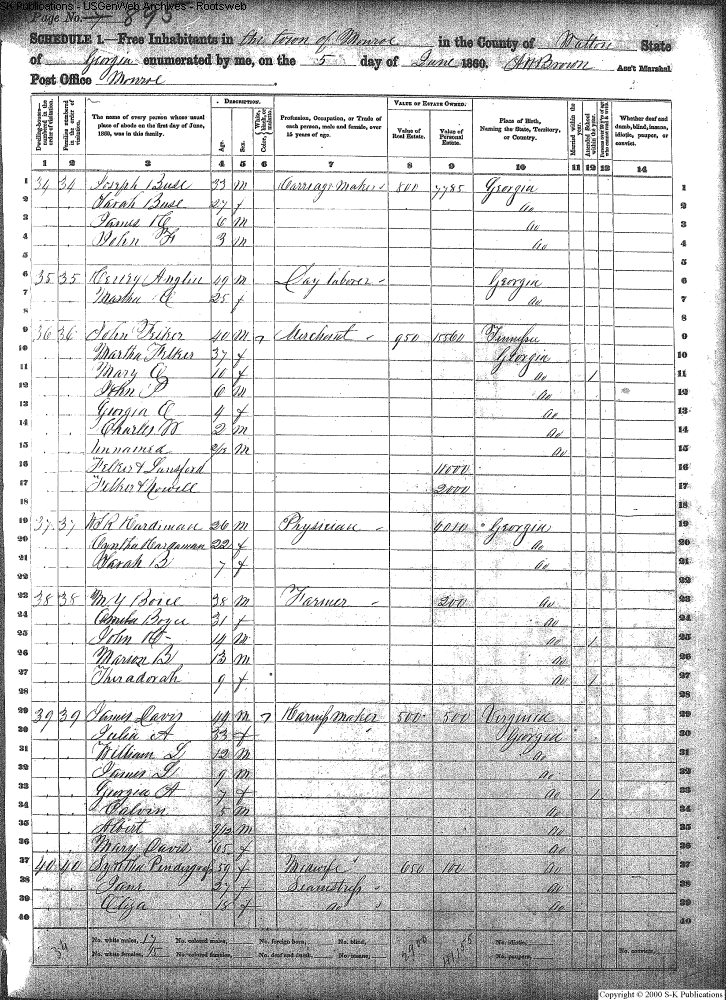 S-K Publications - USGenWeb Archives - Rootsweb
Page No. 893
SCHEDULE 1.—Free Inhabitants in the town of Monroe in the County of Walton State
of Georgia enumerated by me, on the 5 day of June 1860. Ass't Marshal.
Post Office Monroe
DESCRIPTION. VALUE OF ESTATE OWNED.
Dwelling-houses—numbered in the order of visitation. Families numbered in the order of visitation. The name of every person whose usual place of abode on the first day of June, 1860, was in this family. Age. Sex. Color, White, black, or mulatto. Profession, Occupation, or Trade of each person, male and female, over 15 years of age. Value of Real Estate. Value of Personal Estate. Place of Birth, Naming the State, Territory, or Country. Married within the year. Attended School within the year. Whether deaf and dumb, blind, insane, idiotic, pauper, or convict.
1 2 3 4 5 6 7 8 9 10 11 12 13 14
1 34 34 Joseph Buse 33 m Carriage Maker 800 7785 Georgia 1
2 Sarah Buse 27 f Do 2
3 James 6 m Do 3
4 John F 3 m Do 4
5 5
6 35 35 Henry 49 m Day laborer Georgia 6
7 Martha 25 f Do 7
8 8
9 36 36 John Felker 40 m Merchant 950 15560 9
10 Martha Felker 37 f Georgia 10
11 Mary 10 f Do 1 11
12 John P 6 m Do 12
13 Georgia 4 f Do 13
14 Charles W 2 m Do 14
15 unnamed 2/12 m Do 15
16 Felker & Lunsford 11000 16
17 Felker & Nowell 2000 17
18 18
19 37 37 Hardiman 26 m Physician Georgia 19
20 Cyntha Hardaman 22 f Do 20
21 Sarah B 7 f Do 21
22 22
23 38 38 M Y 38 m Farmer 200 Do 23
24 31 f Do 24
25 John 14 m Do 1 25
26 Marson B 13 m Do 26
27 Thiradorah 9 f Do 1 27
28 28
29 39 39 James Davis 44 m Harness Maker 500 500 Virginia 29
30 Julia A 33 f Georgia 30
31 William 12 m Do 31
32 James 9 m Do 32
33 Georgia A 7 f Do 1 33
34 Calvin 5 m Do 34
35 Albert 9/12 m Do 35
36 Mary Davis 65 f Do 36
37 40 40 Syntha 59 f Midwife 650 100 Do 37
38 Jane 27 f Seamstress Do 38
39 Eliza 18 f Do Do 39
40 40
No. white males, 17 No. colored males, No. foreign born, No. blind, No. idiotic,
No. white females, No. colored females, No. deaf and dumb, No. insane, No. paupers, No. convicts,
Copyright © 2000 S-K Publications